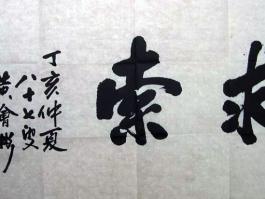 求索
丁亥仲夏
八十七叟
黄會